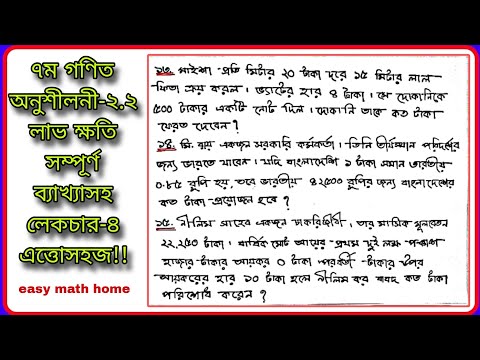 ৭ম গণিত
অনুশীলনী-২.২
লাভ ক্ষতি
সম্পূর্ণ
ব্যাখ্যাসহ
লেকচার-৪
এত্তোসহজ!!
easy math home
১৩. মাইশা প্রতি মিটার ২০ টাকা দরে ১৫ মিটার লাল
ফিতা ক্রয় করল। ভ্যাটের হার ৪ টাকা। সে দোকানিকে
৫০০ টাকার একটি নোট দিল। দোকানি তাকে কত টাকা
ফেরত দেবেন?
১৪. মি. রায় একজন সরকারি কর্মকর্তা। তিনি তীর্থস্থান পরিদর্শনের
জন্য ভারতে যাবেন। যদি বাংলাদেশি ১ টাকা সমান ভারতীয়
০.৮৫ রুপি হয়, তবে ভারতীয় ৪২৫০০ রুপির জন্য বাংলাদেশের
কত টাকা প্রয়োজন হবে?
১৫. নীলিম সাহেব একজন চাকরিজীবী। তার মাসিক মূলবেতন
২২,২৫০ টাকা। বার্ষিক মোট আয়ের প্রথম দুই লক্ষ পঞ্চাশ
হাজার টাকার আয়কর ০ টাকা। পরবর্তী টাকার উপর
আয়করের হার ১০ টাকা হলে নীলিম কর বাবদ কত টাকা
পরিশোধ করেন?